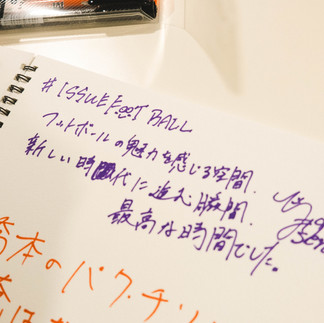 #ISSUEFOOTBALL
フットボールの魅力を感じる空間.
新しい時代に進む瞬間.
最高な時間でした。
橋本のパク.チ.ソ